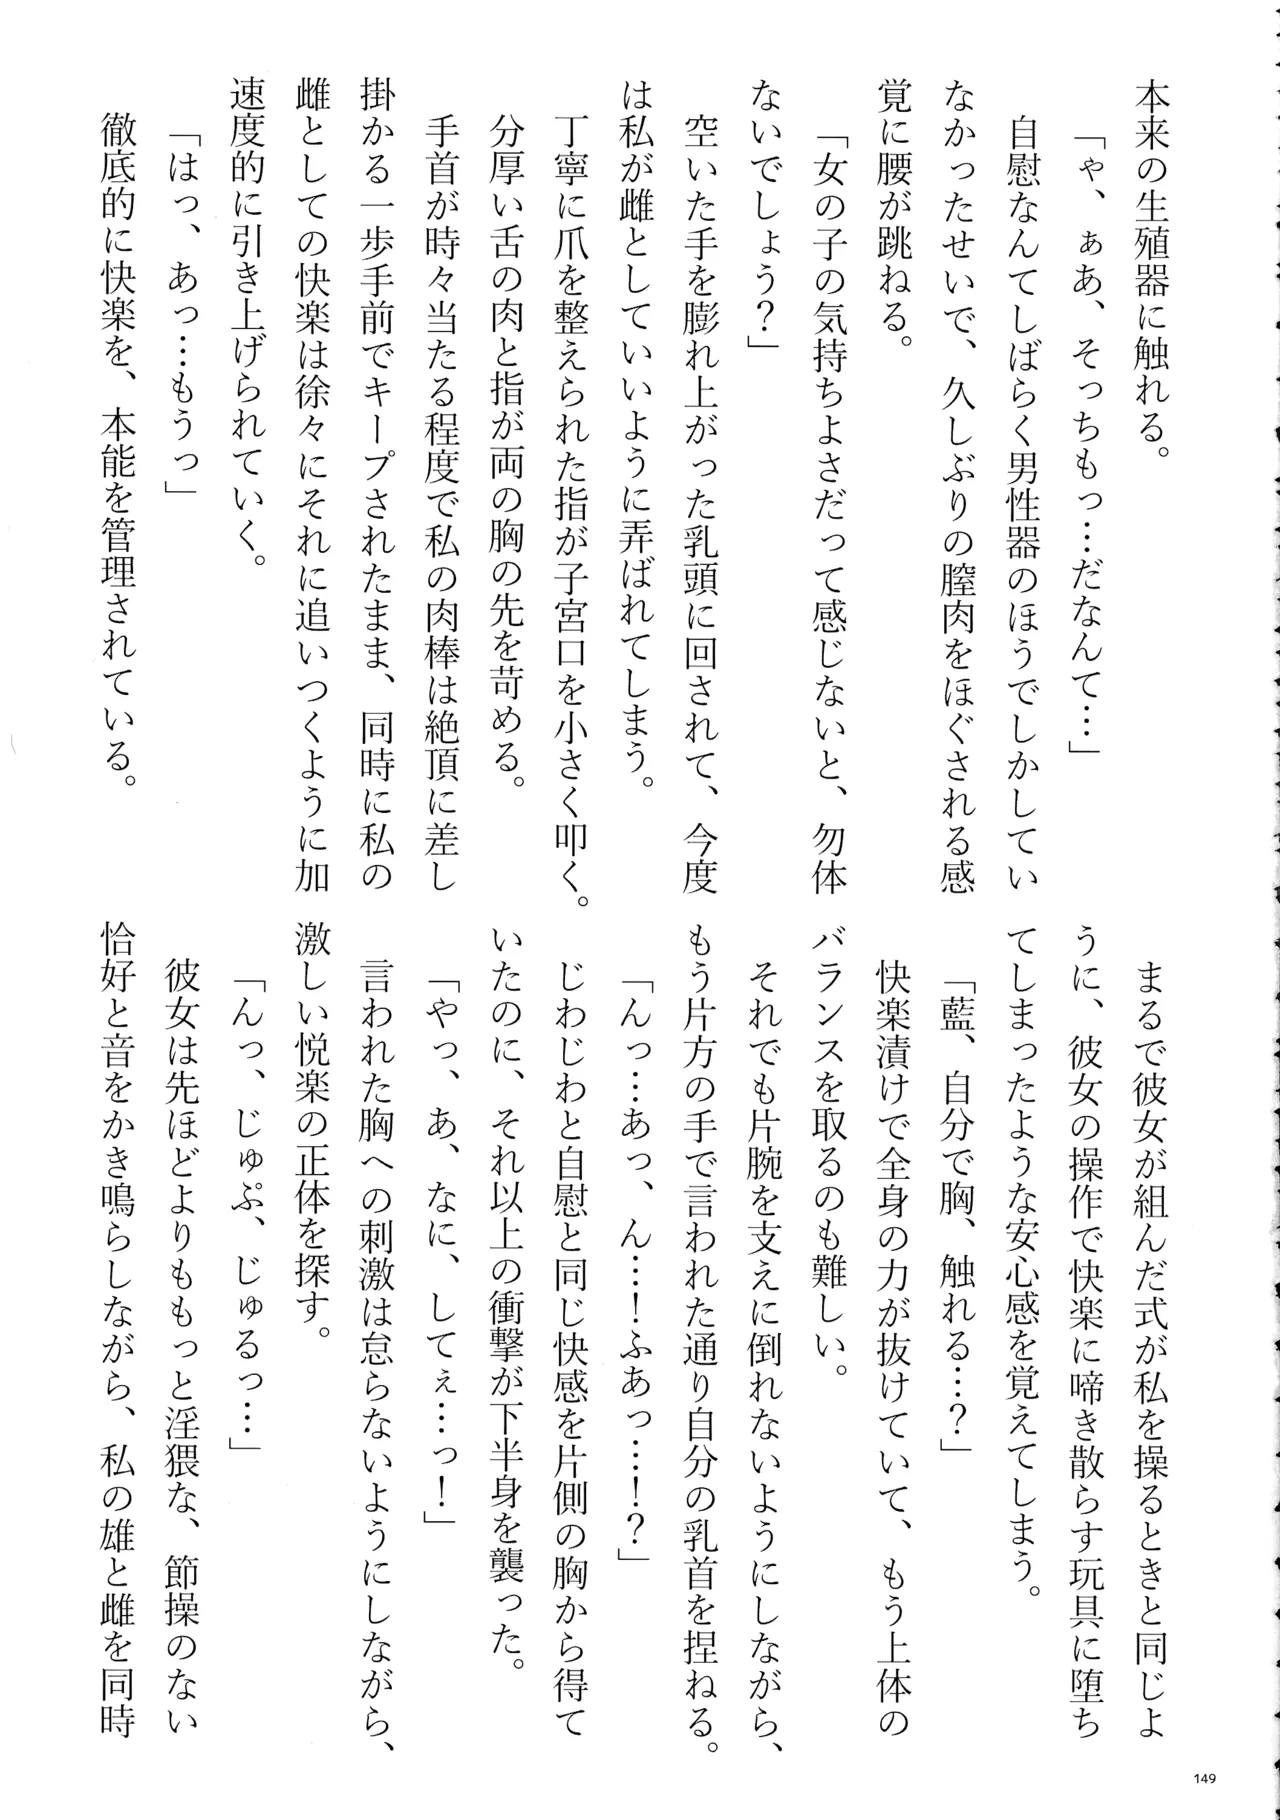 本来の生殖器に触れる。
「ゃ、ぁあ、そっちもっ…だなんて…」
自慰なんてしばらく男性器のほうでしかしてい
なかったせいで、久しぶりの膣肉をほぐされる感
覚に腰が跳ねる。
「女の子の気持ちよさだって感じないと、勿体
ないでしょう？」
空いた手を膨れ上がった乳頭に回されて、今度
は私が雌としていいように弄ばれてしまう。
丁寧に爪を整えられた指が子宮口を小さく叩く。
分厚い舌の肉と指が両の胸の先を苛める。
手首が時々当たる程度で私の肉棒は絶頂に差し
掛かる一歩手前でキープされたまま、同時に私の
雌としての快楽は徐々にそれに追いつくように加
速度的に引き上げられていく。
「はっ、あっ…もうっ」
徹底的に快楽を、本能を管理されている。
まるで彼女が組んだ式が私を操るときと同じよ
うに、彼女の操作で快楽に啼き散らす玩具に堕ち
てしまったような安心感を覚えてしまう。
「藍、自分で胸、触れる…？」
快楽漬けで全身の力が抜けていて、もう上体の
バランスを取るのも難しい。
それでも片腕を支えに倒れないようにしながら、
もう片方の手で言われた通り自分の乳首を捏ねる。
「んっ…あっ、ん…！ふあっ…！？」
じわじわと自慰と同じ快感を片側の胸から得て
いたのに、それ以上の衝撃が下半身を襲った。
「やっ、あ、なに、してぇ…っ！」
言われた胸への刺激は怠らないようにしながら、
激しい悦楽の正体を探す。
「んっ、じゅぷ、じゅるっ…」
彼女は先ほどよりももっと淫猥な、節操のない
恰好と音をかき鳴らしながら、私の雄と雌を同時
149